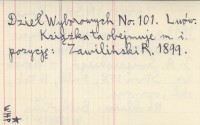 Dzieł Wyborowych No. 101. Lwów.
Książka ta obejmuje m. i.
pozycję: Zawiliński R. 1899.